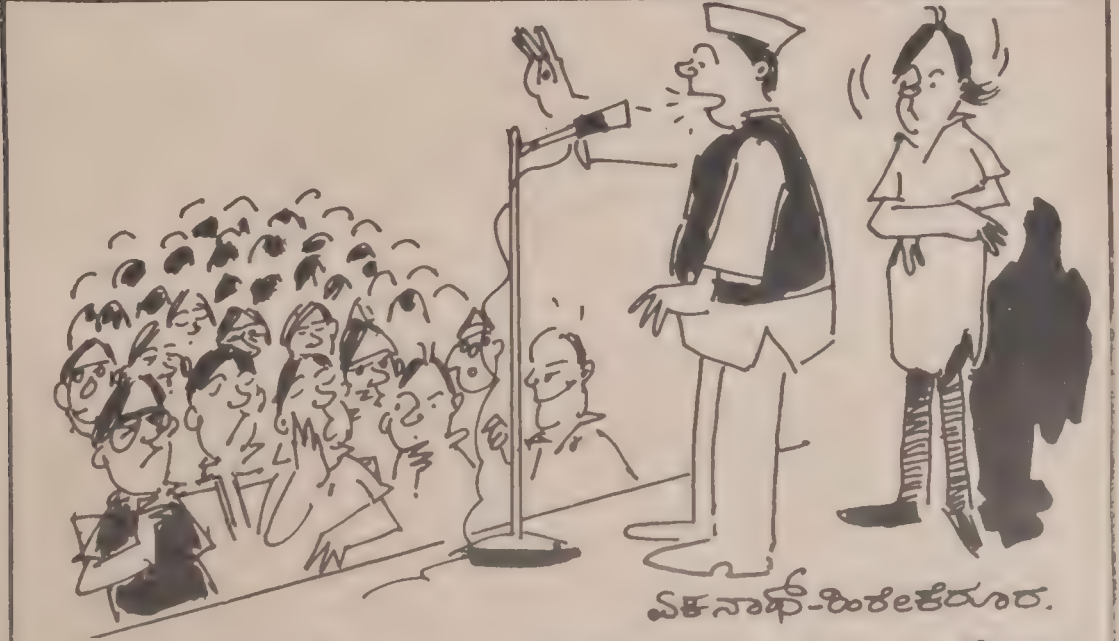 ಏಕನಾಥ್-ಹಿರೇಕೆರೂರ.